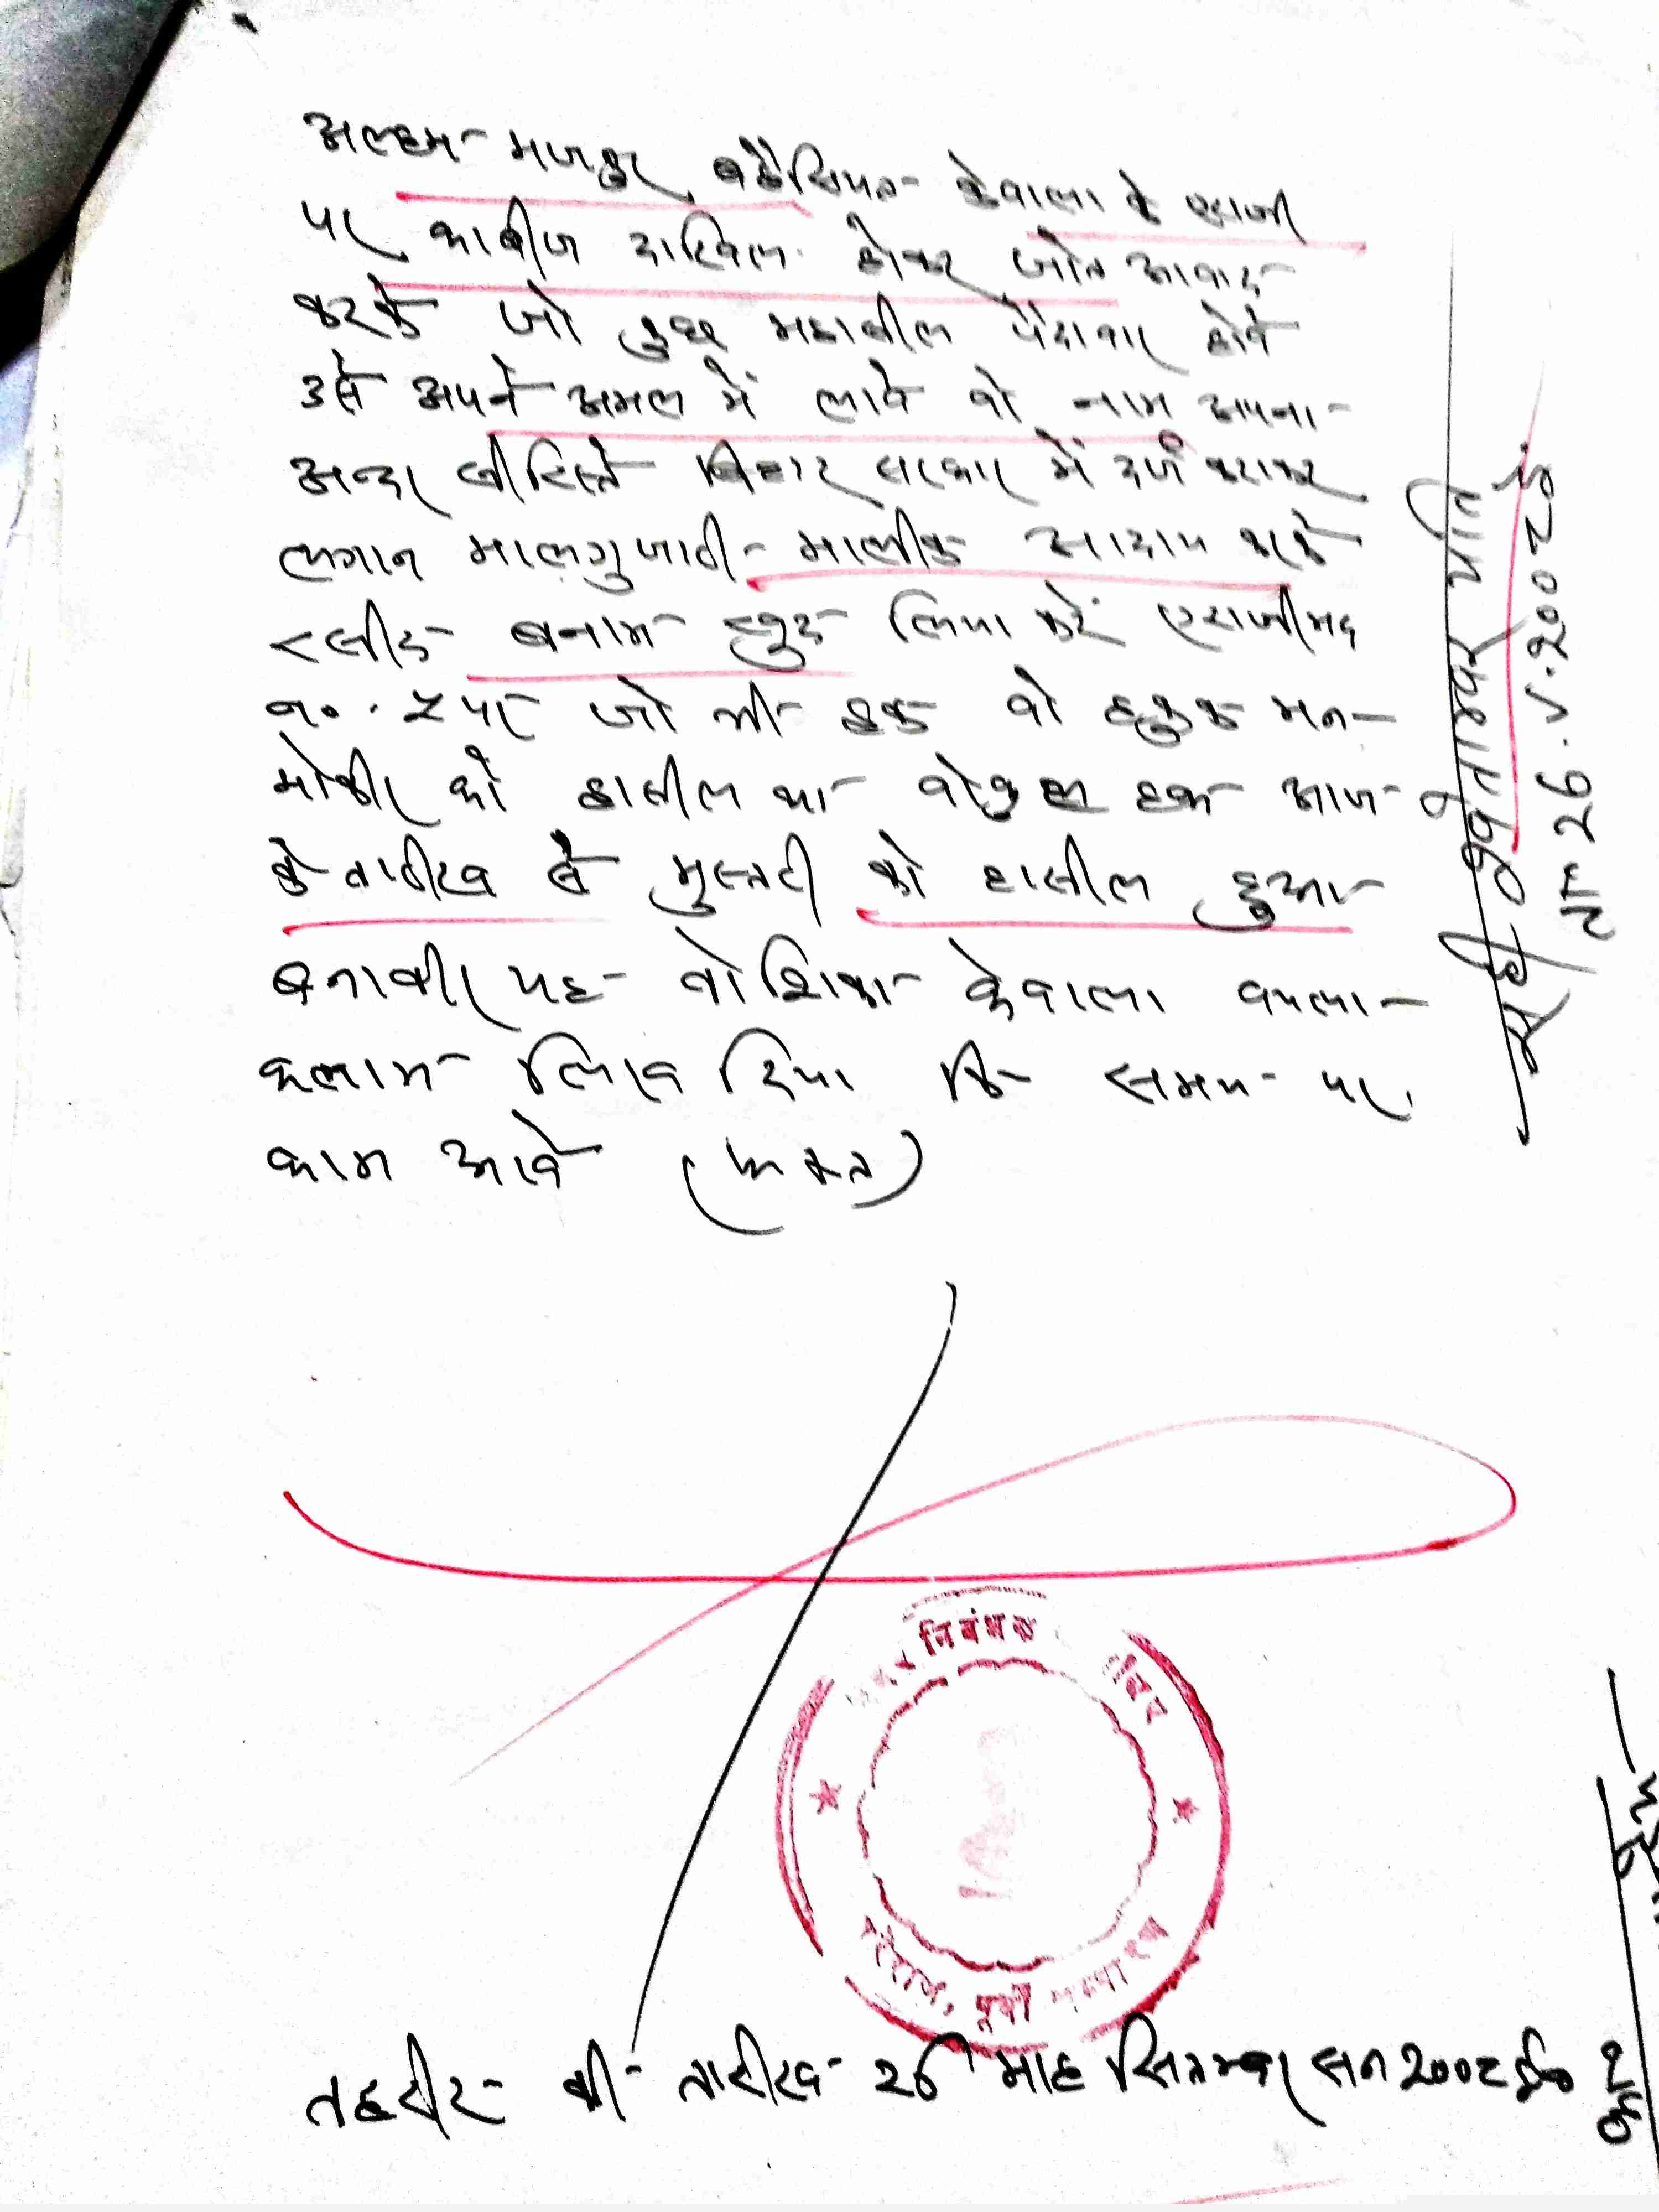 अलहम मजकुर बहैसियत केवाला के एराजी
पर काबीज दाखिल होकर जोत आवाद
करके जो कुछ महासील पैदावार होवे
उसे अपने अमल में लावे वो नाम अपना
अन्दर सीरिस्ते बिहार सरकार में दर्ज कराकर
लगान मालगुजारी मालीक आदाय करके
रसीद बनाम खुद लिया करें एराजी मद
न० ५ पर जो भी हक वो हकुक मन
मोकीर को हासील था वो कुल हक आज
के तारीख से मुस्तरी को हासील हुआ
बनावीर यह वोशिका केवाला वयला
कलाम लिख दिया कि समय पर
काम आवे (फक्त)
सही भुवनेश्वर पति
ता 26.9.2008ई
निबंधक
पूर्वी चम्पारण
तहरीर बी तारीख 26 माह सितम्बर सन 2008 ई०